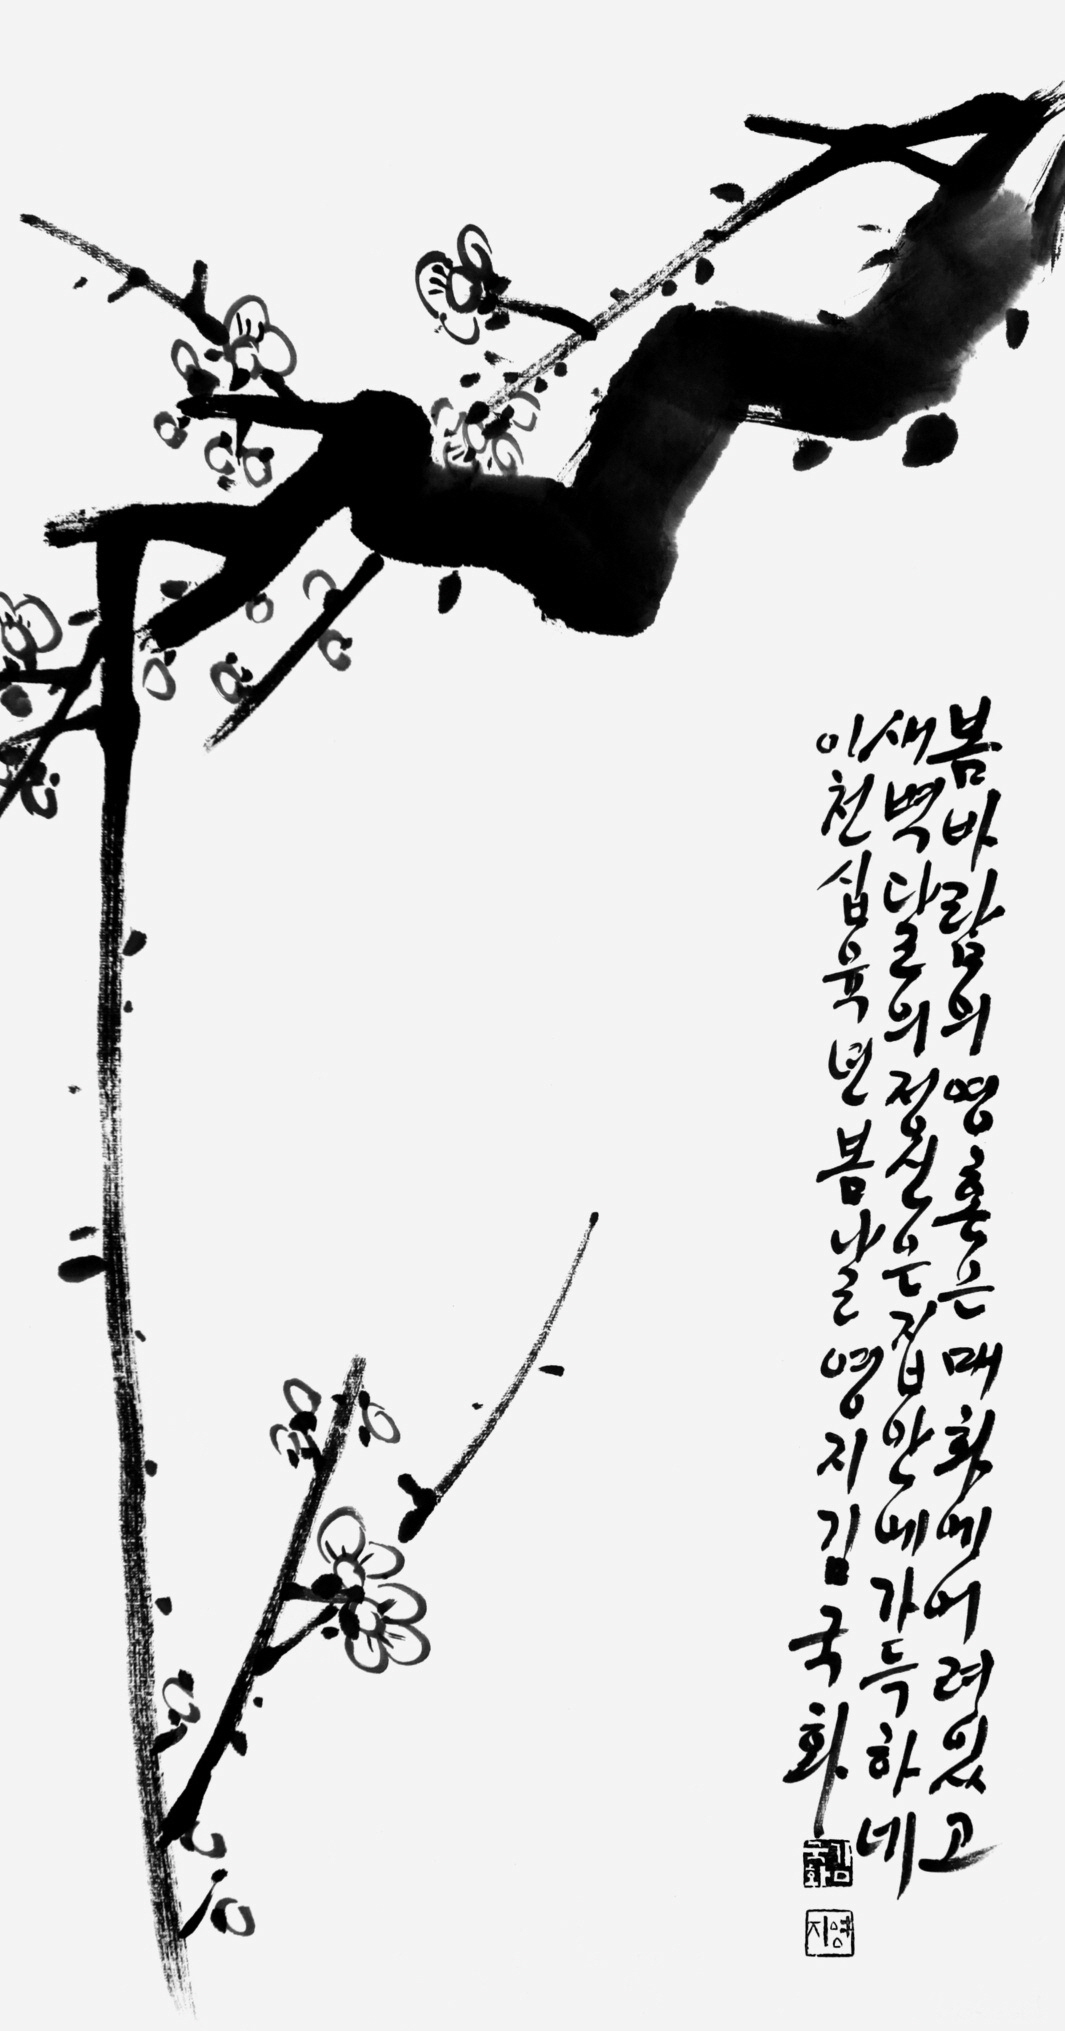 봄바람의 영혼은 매화에 어려있고
새벽달의 정신은 집안에 가득하네
이천십육년 봄날 영지 김국화
김국화
영지